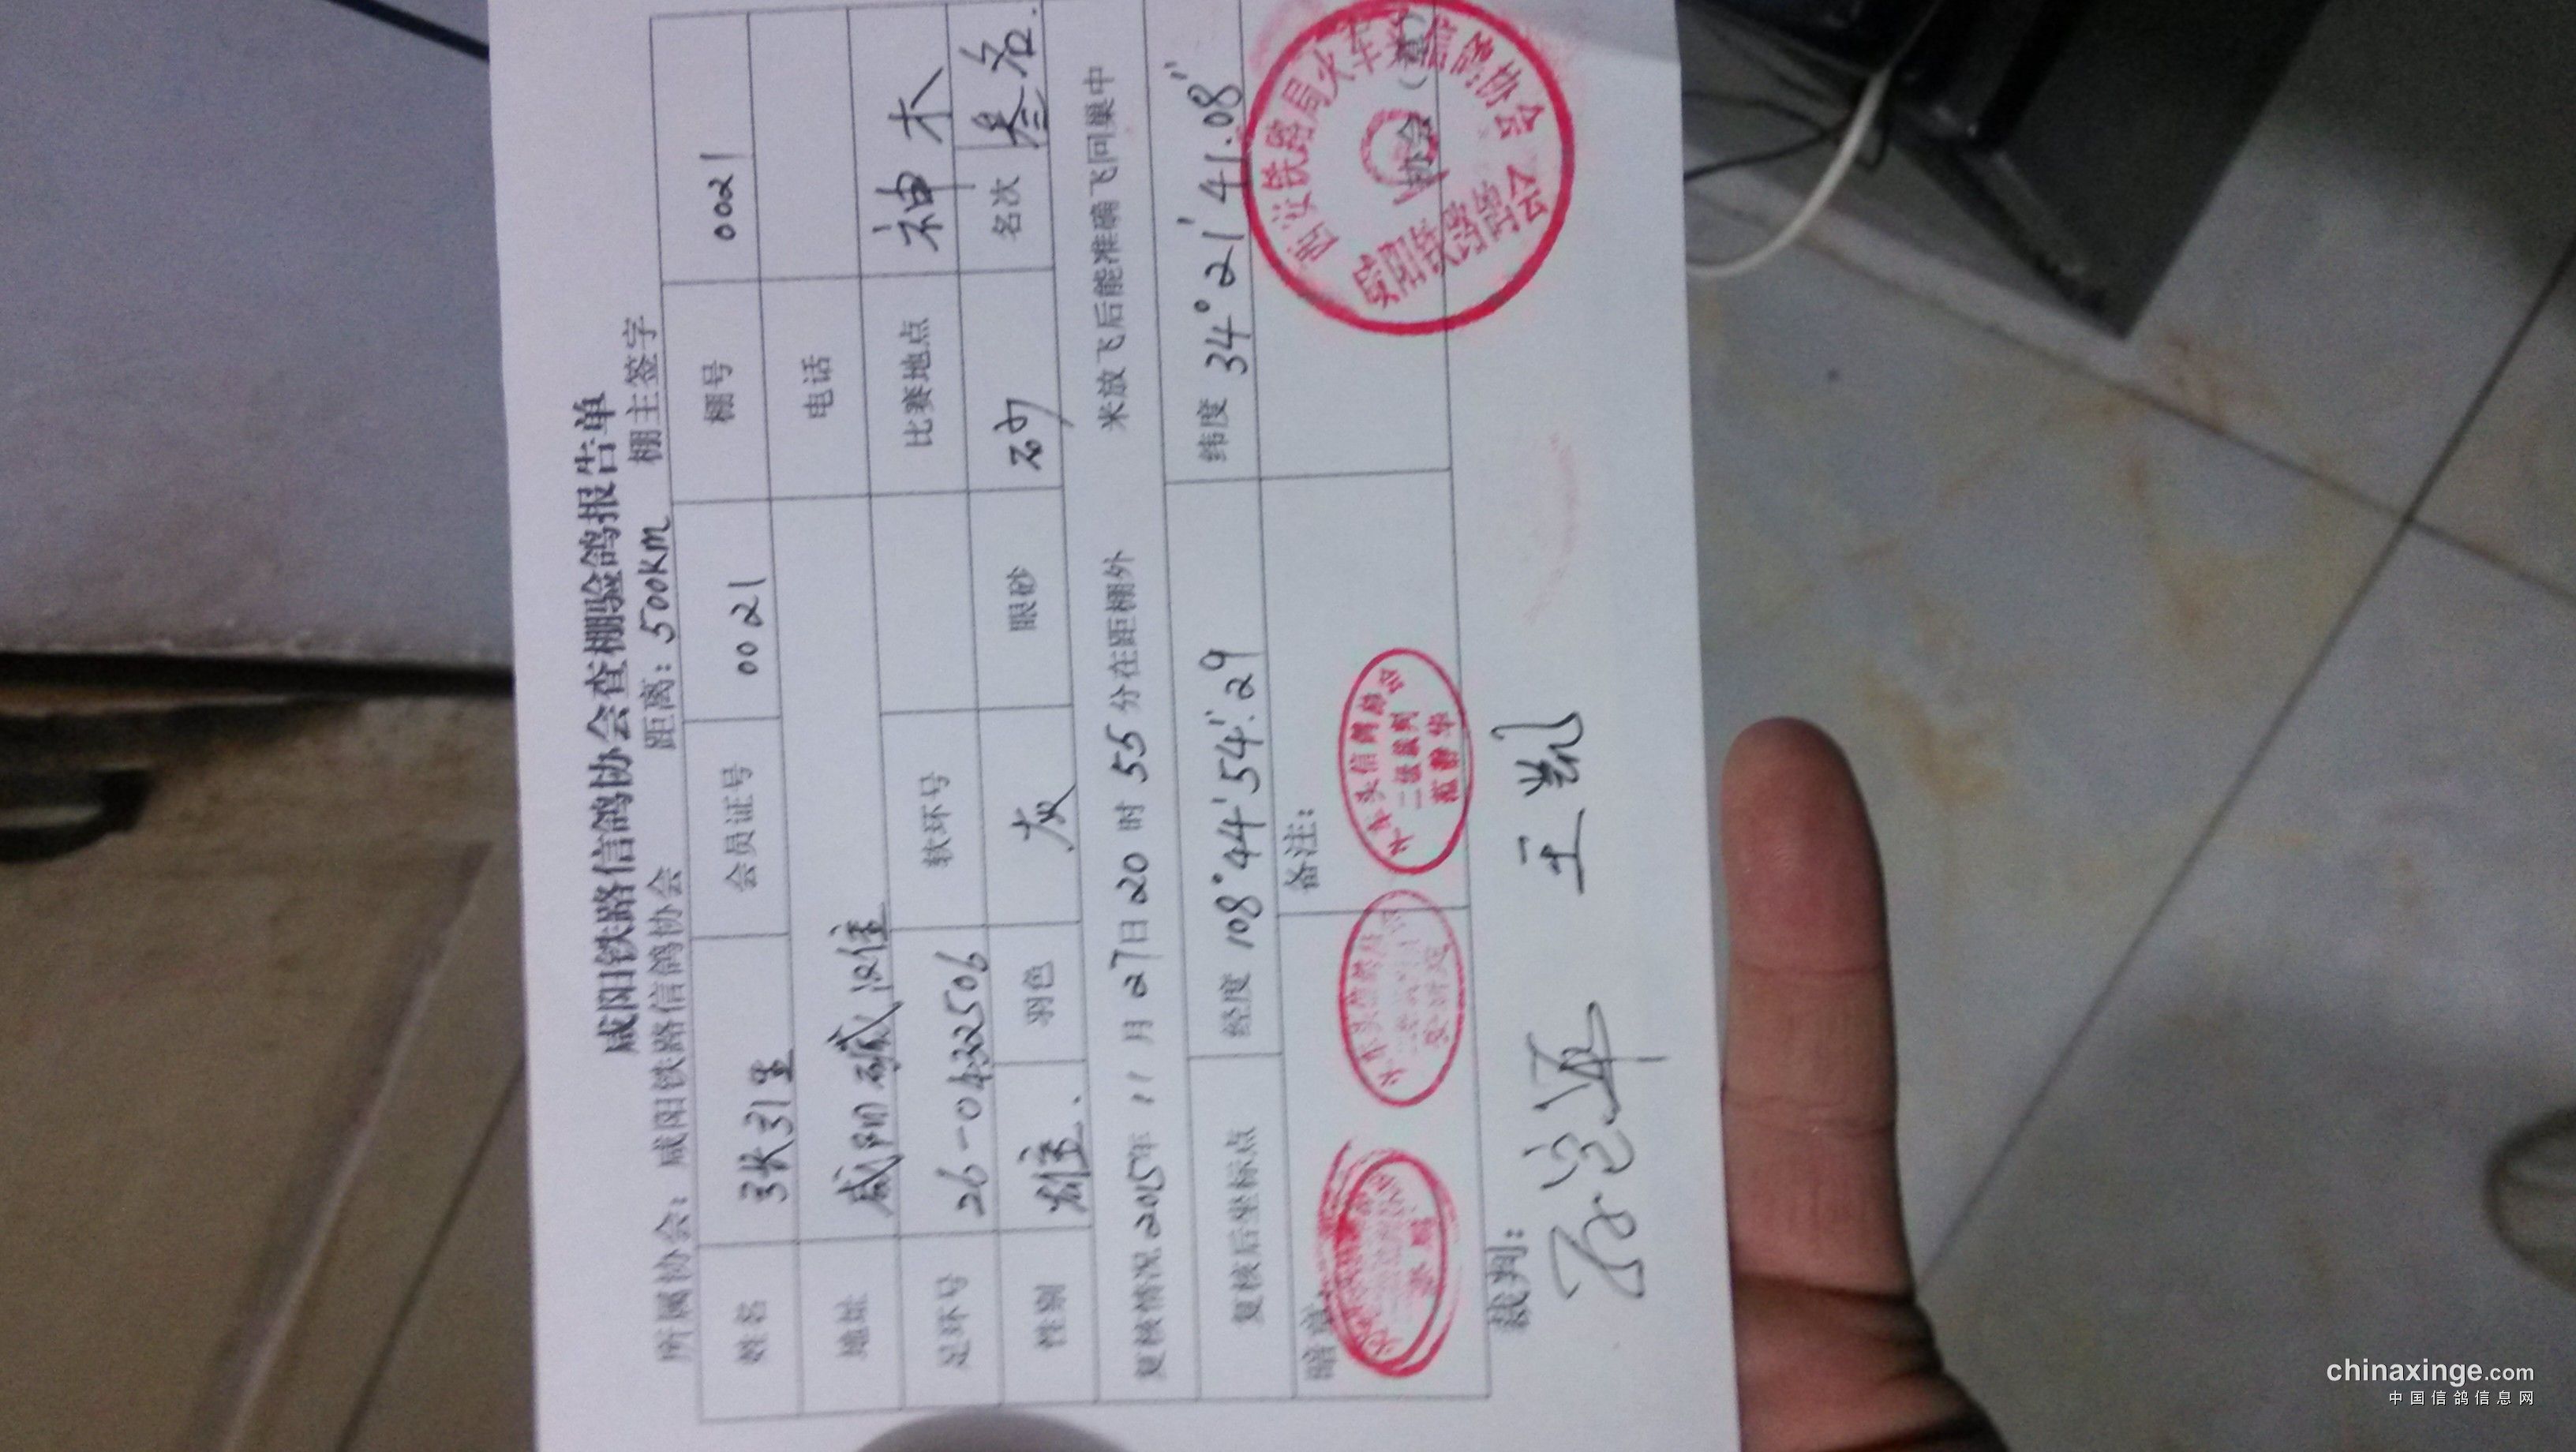 咸阳铁路信鸽协会查棚验鸽报告单
所属协会：咸阳铁路信鸽协会 距离：500KM 棚主签字
姓名 张引生 会员证号 0021 棚号 0021
地址 咸阳 电话
足环号 26-0432506 软环号 比赛地点 神木
性别 雄. 羽色 灰 眼砂 名次 叁名.
复核情况2015年 11 月 27日 20 时 55 分在距棚外 米放飞后能准确飞回巢中
复核后坐标点 经度 108°44'54''.29 纬度 34°21'41.08''
备注： 协会（章）
西安铁路局火车头信鸽协会
咸阳铁路
火车头信鸽协会
二级裁判
裁判： 王
chinaxinge.com
中国信鸽信息网